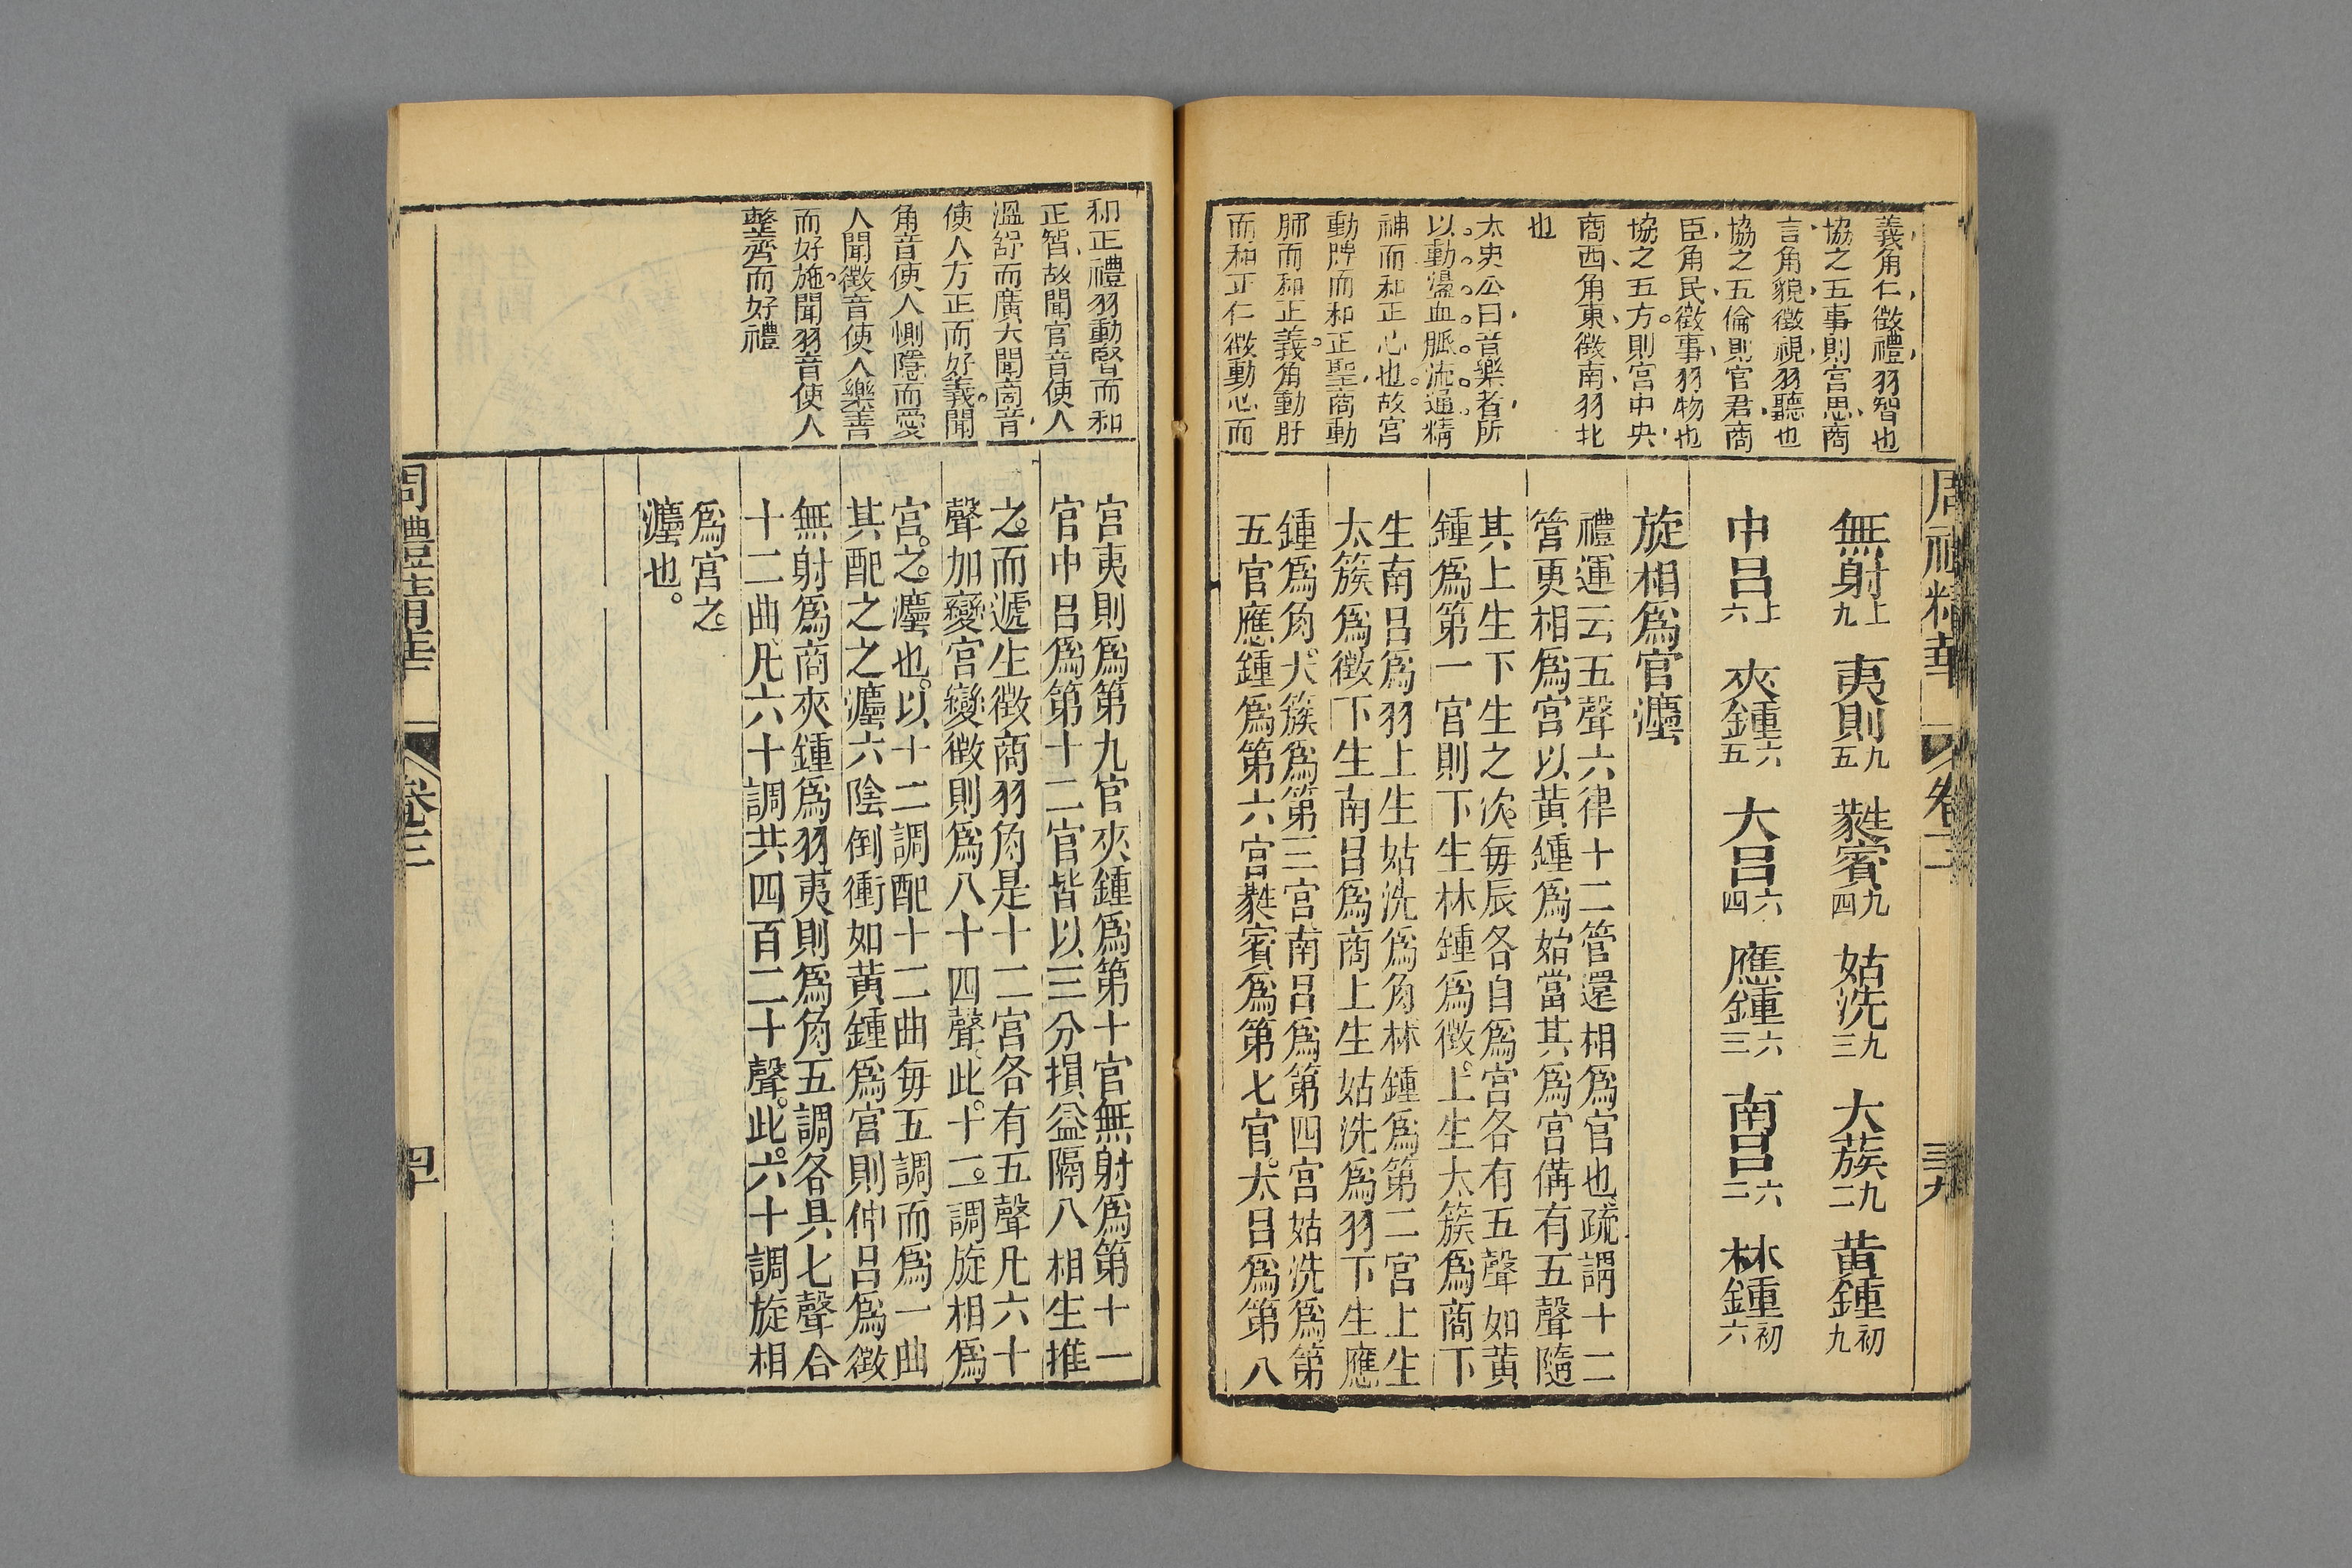 周禮精華
卷三
三九
義角仁徵禮羽智也
協之五事則宮思商
言角貌徵視羽聽也
協之五倫則官君商
臣角民徵事羽物也
協之五方則宮中央
商西角東徵南羽北
也
太史公曰音樂者所
以動盪血脈流通精
神而和正心也故宮
動脾而和正聖商動
肺而和正義角動肝
而和正仁徵動心而
無射上九 夷則九五 蕤賓九四 姑洗九三 大蔟九二 黃鍾初九
中呂上六 夾鍾六五 大呂六四 應鍾六三 南呂六二 林鍾初六
旋相爲官灋
禮運云五聲六律十二管還相爲官也疏謂十二
管更相爲宮以黃鍾爲始當其爲宮備有五聲隨
其上生下生之次每辰各自爲宮各有五聲如黃
鍾爲第一官則下生林鍾爲徵上生太簇爲商下
生南呂爲羽上生姑洗爲角林鍾爲第二宮上生
太簇爲徵下生南呂爲商上生姑洗爲羽下生應
鍾爲角大簇爲第三宮南呂爲第四宮姑洗爲第
五官應鍾爲第六宮蕤賓爲第七官太呂爲第八
和正禮羽動腎而和
正智故聞官音使人
溫舒而廣大聞商音
使人方正而好義聞
角音使人惻隱而愛
人聞徵音使人樂善
而好施聞羽音使人
整齊而好禮
宮夷則爲第九官夾鍾爲第十官無射爲第十一
官中呂爲第十二官皆以三分損益隔八相生推
之而遞生徵商羽角是十二宮各有五聲凡六十
聲加變宮變徵則爲八十四聲此十二調旋相爲
宮之灋也以十二調配十二曲每五調而爲一曲
其配之之灋六陰倒衝如黃鍾爲宮則仲呂爲徵
無射爲商夾鍾爲羽夷則爲角五調各具七聲合
十二曲凡六十調共四百二十聲此六十調旋相
爲宮之
灋也。
周禮精華
卷三
四十